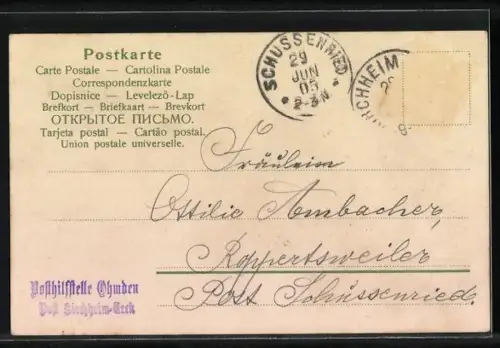 Postkarte
Carte Postale — Cartolina Postale
Correspondenzkarte
Dopisnice — Levelező-Lap
Brefkort — Briefkaart — Brevkort
ОТКРЫТОЕ ПИСЬМО.
Tarjeta postal — Cartão postal.
Union postale universelle.
SCHUSSENRIED
29
JUN
05
2-3N
KIRCHHEIM
Fräulein
Ottilie Ambacher,
Roppertsweiler
Post Schussenried.
Posthilfstelle Ohmden
Post Kirchheim-Teck